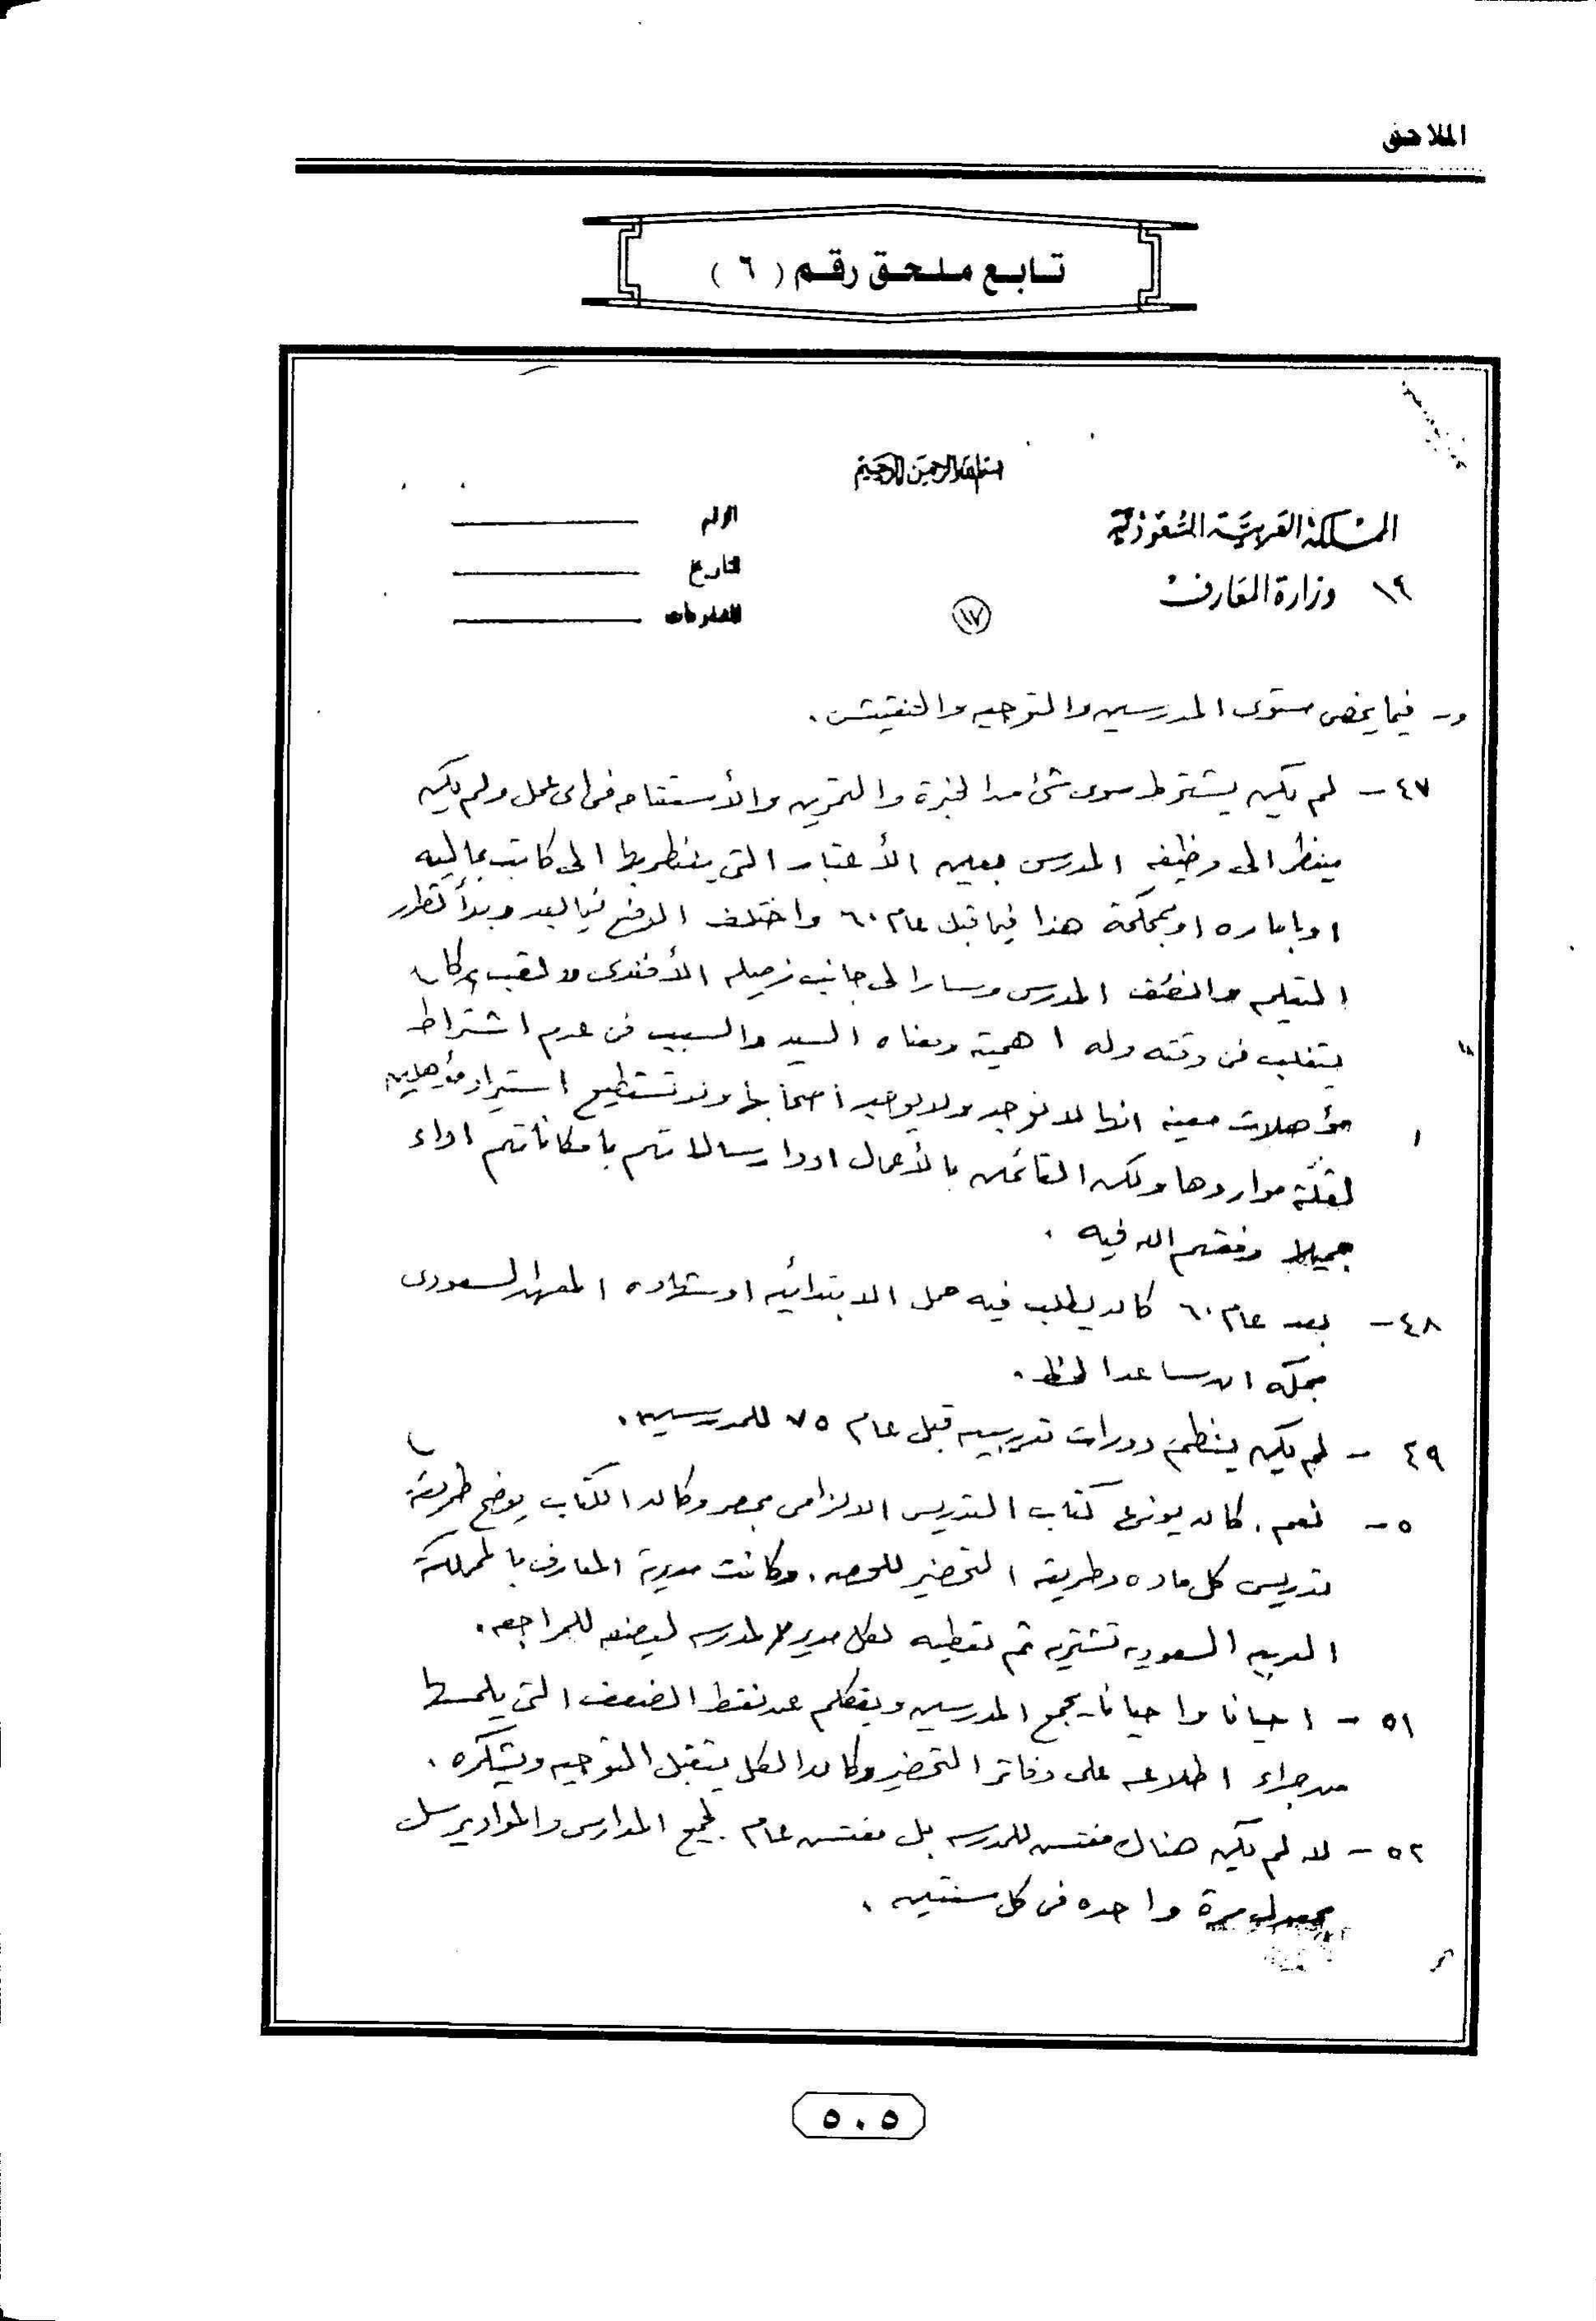 الملاحق
تابع ملحق رقم ( ٦ )
بسم الله الرحمن الرحيم
المملكة العربية السعودية
١٩ وزارة المعارف
الرقم
التاريخ
المشفوعات
١٧
و- فيما يخص مستوى المدرسين والتوجيه والتفتيش .
٤٧ - لم يكن يشترط سوى شئ من الخبرة والتمرين والأستقامه في اى عمل ولم يكن
ينظر الى وظيفه المدرس بعين الأعتبار التي ينظر بها الى كاتب بماليه
او باماره او بمحكمة هذا فيما قبل عام ٦٠ واختلف الوضع فيما بعد وبدأ تطور
التعليم وانصف المدرس وسار الى جانب زميله الأفندى ولقب كان
يتغلب في وقته وله اهمية ومعناه السيد والسبب في عدم اشتراط
مؤهلات معينه انها لا توجد ولا يوجد اصحابها ولا تستطيع استيراد مؤهلين
لقلة مواردها ولكن القائمين بالأعمال ادوا رسالاتهم بامكاناتهم اداء
جميلا وفقهم الله فيه .
٤٨ - بعد عام ٦٠ كان يطلب فيه حمل الابتدائيه او شهاده المعهد السعودى
بمكه ان ساعد الحظ .
٤٩ - لم يكن ينظم دورات تدريبيه قبل عام ٧٥ للمدرسين .
٥٠ - نعم . كان يوزع كتاب التدريس الالزامى بمصر وكان الكتاب يوضح طريقة
تدريس كل ماده وطريقه التحضير للحصه . وكانت مديرية المعارف بالمملكة
العربيه السعوديه تشتريه ثم تعطيه لكل مدير مدرسه ليضعه للمراجعه .
٥١ - احيانا واحيانا يجمع المدرسين ويفكلم عن نقط الضعف التي يلمسها
من جراء اطلاعه على دفاتر التحضير وكان الكل يتقبل التوجيه ويشكره .
٥٢ - لا لم يكن هناك مفتش للمدرسه بل مفتش عام لجميع المدارس والمواد يرسل
بمعدل مرة واحده في كل سنتين .
٥٠٥